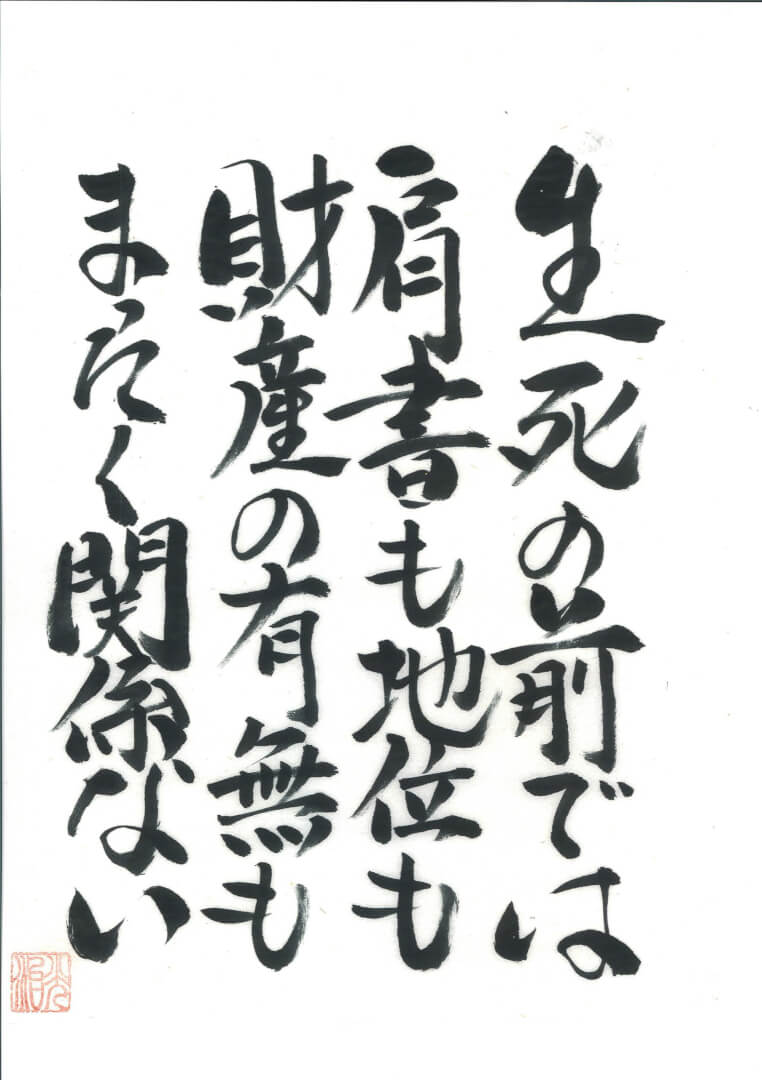 生死の前では
肩書も地位も
財産の有無も
まったく関係ない